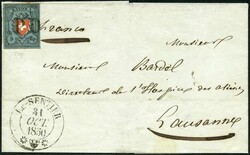 P.P.
Franco
Monsieur
Monsieur Bardel
Directeur de l'Hospice des aliénés
Lausanne
LE SENTIER
31
OCT
1850